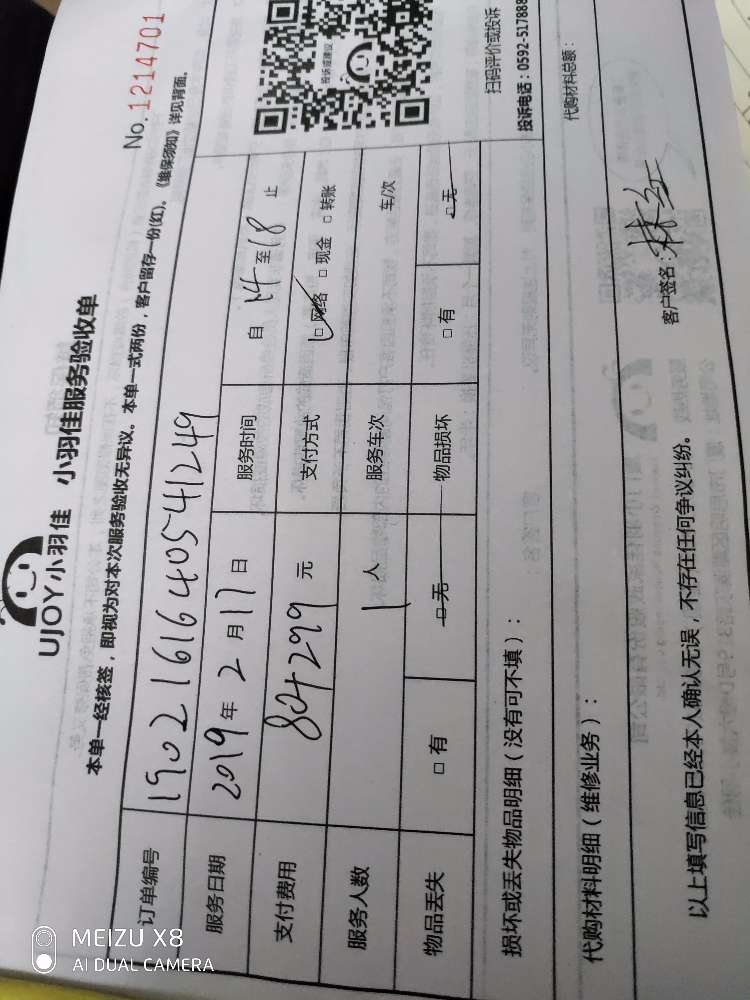 UJOY小羽佳 小羽佳服务验收单
No.1214701
本单一经核签，即视为对本次服务验收无异议。本单一式两份，客户留存一份(红)。《维保须知》详见背面。
订单编号 19021616405541249
服务日期 2019年2月17日 服务时间 自14至18止
支付费用 804299元 支付方式 □网络 □现金 □转账
服务人数 1人 服务车次 车/次
物品丢失 □有 □无 物品损坏 □有 □无
投诉或建议
扫码评价或投诉
投诉电话：0592-517888
损坏或丢失物品明细（没有可不填）：
代购材料明细（维修业务）： 代购材料总额：
以上填写信息已经本人确认无误，不存在任何争议纠纷。 客户签名：林红
MEIZU X8
AI DUAL CAMERA